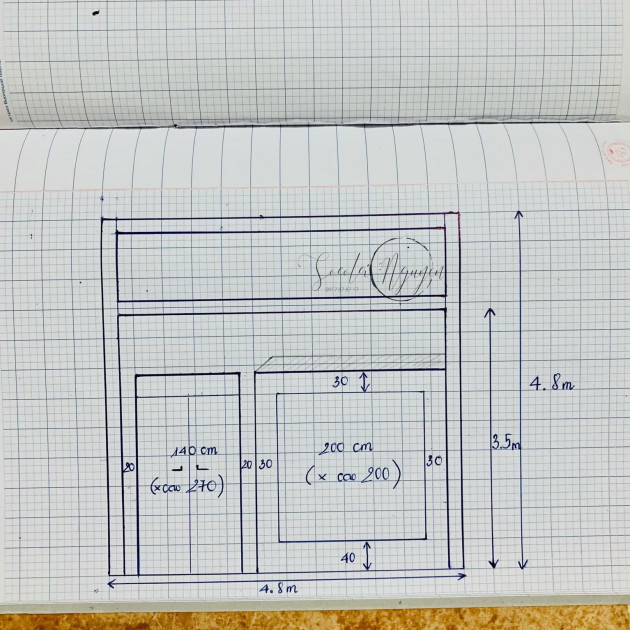 Socolar Nguyen
30
4.8m
140 cm
200 cm
3.5m
20
20
30
30
(x cao 270)
(x cao 200)
40
4.8m